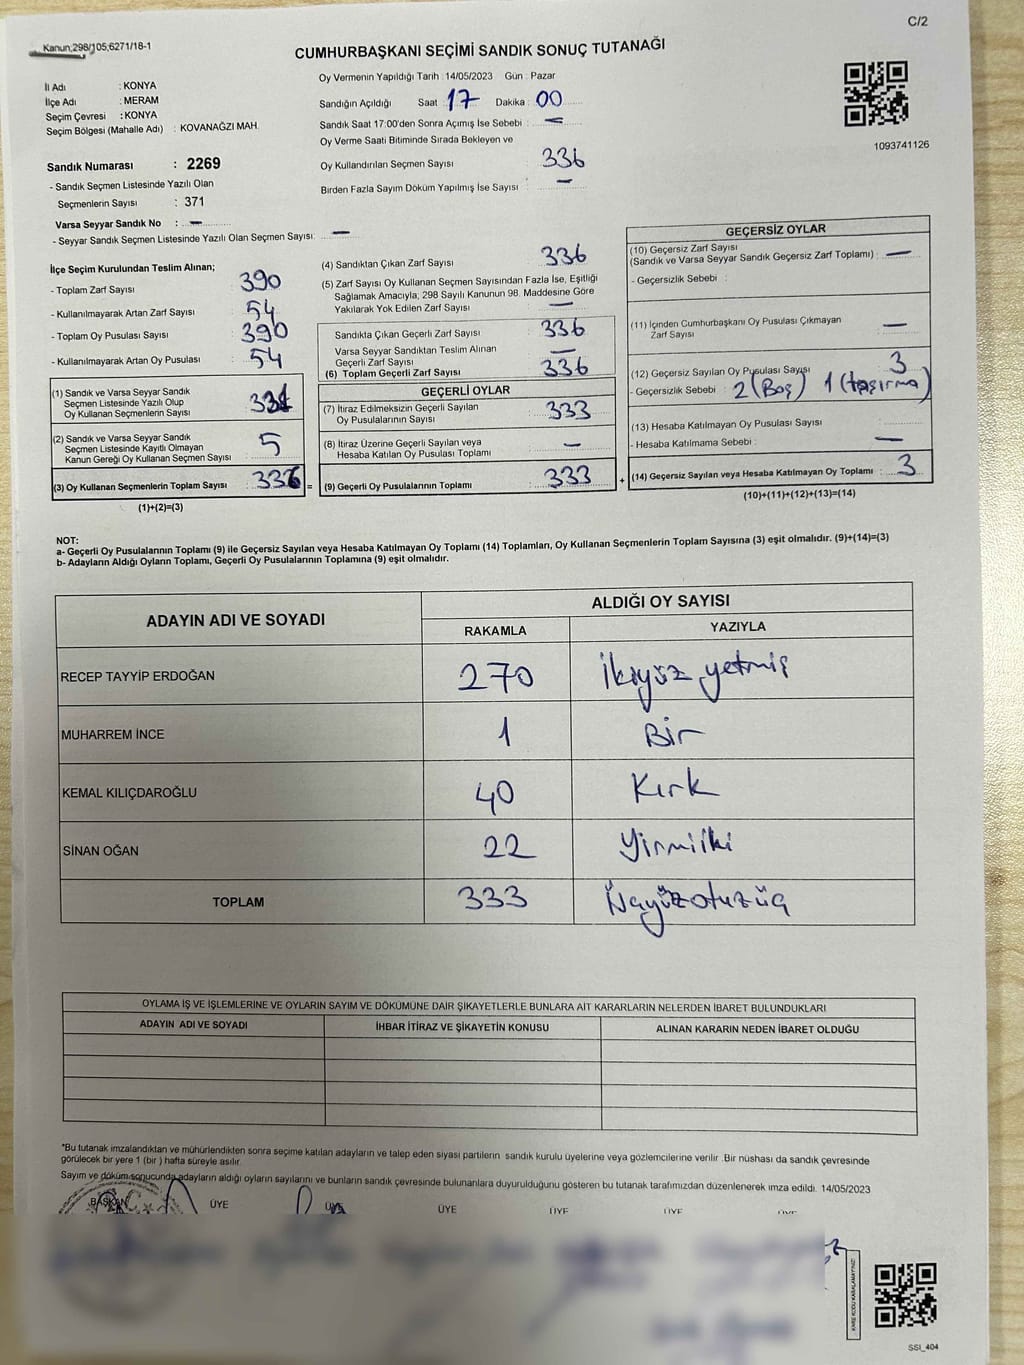 C/2
Kanun;298/105;6271/18-1
CUMHURBAŞKANI SEÇİMİ SANDIK SONUÇ TUTANAĞI
İl Adı : KONYA
İlçe Adı : MERAM
Seçim Çevresi : KONYA
Seçim Bölgesi (Mahalle Adı) : KOVANAĞZI MAH.
Sandık Numarası : 2269
- Sandık Seçmen Listesinde Yazılı Olan
Seçmenlerin Sayısı : 371
Varsa Seyyar Sandık No : —
- Seyyar Sandık Seçmen Listesinde Yazılı Olan Seçmen Sayısı: —
Oy Vermenin Yapıldığı Tarih : 14/05/2023 Gün : Pazar
Sandığın Açıldığı Saat : 17 Dakika : 00
Sandık Saat 17:00'den Sonra Açımış İse Sebebi : —
Oy Verme Saati Bitiminde Sırada Bekleyen ve
Oy Kullandırılan Seçmen Sayısı 336
Birden Fazla Sayım Döküm Yapılmış İse Sayısı : —
1093741126
İlçe Seçim Kurulundan Teslim Alınan;
- Toplam Zarf Sayısı 390
- Kullanılmayarak Artan Zarf Sayısı : 54
- Toplam Oy Pusulası Sayısı : 390
- Kullanılmayarak Artan Oy Pusulası : 54
(1) Sandık ve Varsa Seyyar Sandık
Seçmen Listesinde Yazılı Olup
Oy Kullanan Seçmenlerin Sayısı : 331
(2) Sandık ve Varsa Seyyar Sandık
Seçmen Listesinde Kayıtlı Olmayan
Kanun Gereği Oy Kullanan Seçmen Sayısı : 5
(3) Oy Kullanan Seçmenlerin Toplam Sayısı : 336 =
(1)+(2)=(3)
(4) Sandıktan Çıkan Zarf Sayısı : 336
(5) Zarf Sayısı Oy Kullanan Seçmen Sayısından Fazla İse, Eşitliği
Sağlamak Amacıyla; 298 Sayılı Kanunun 98. Maddesine Göre
Yakılarak Yok Edilen Zarf Sayısı : —
Sandıkta Çıkan Geçerli Zarf Sayısı : 336
Varsa Seyyar Sandıktan Teslim Alınan
Geçerli Zarf Sayısı : —
(6) Toplam Geçerli Zarf Sayısı : 336
GEÇERLİ OYLAR
(7) İtiraz Edilmeksizin Geçerli Sayılan
Oy Pusulalarının Sayısı : 333
(8) İtiraz Üzerine Geçerli Sayılan veya
Hesaba Katılan Oy Pusulası Toplamı : —
(9) Geçerli Oy Pusulalarının Toplamı : 333 +
GEÇERSİZ OYLAR
(10) Geçersiz Zarf Sayısı
(Sandık ve Varsa Seyyar Sandık Geçersiz Zarf Toplamı) : —
- Geçersizlik Sebebi :
(11) İçinden Cumhurbaşkanı Oy Pusulası Çıkmayan
Zarf Sayısı : —
(12) Geçersiz Sayılan Oy Pusulası Sayısı 3
- Geçersizlik Sebebi : 2 (Boş) 1 (taşırma)
(13) Hesaba Katılmayan Oy Pusulası Sayısı :
- Hesaba Katılmama Sebebi : —
(14) Geçersiz Sayılan veya Hesaba Katılmayan Oy Toplamı : 3
(10)+(11)+(12)+(13)=(14)
NOT:
a- Geçerli Oy Pusulalarının Toplamı (9) ile Geçersiz Sayılan veya Hesaba Katılmayan Oy Toplamı (14) Toplamları, Oy Kullanan Seçmenlerin Toplam Sayısına (3) eşit olmalıdır. (9)+(14)=(3)
b- Adayların Aldığı Oyların Toplamı, Geçerli Oy Pusulalarının Toplamına (9) eşit olmalıdır.
ADAYIN ADI VE SOYADI ALDIĞI OY SAYISI
RAKAMLA YAZIYLA
RECEP TAYYİP ERDOĞAN 270 İkiyüz yetmiş
MUHARREM İNCE 1 Bir
KEMAL KILIÇDAROĞLU 40 Kırk
SİNAN OĞAN 22 Yirmiiki
TOPLAM 333 Üçyüzotuzüç
OYLAMA İŞ VE İŞLEMLERİNE VE OYLARIN SAYIM VE DÖKÜMÜNE DAİR ŞİKAYETLERLE BUNLARA AİT KARARLARIN NELERDEN İBARET BULUNDUKLARI
ADAYIN ADI VE SOYADI İHBAR İTİRAZ VE ŞİKAYETİN KONUSU ALINAN KARARIN NEDEN İBARET OLDUĞU
*Bu tutanak imzalandıktan ve mühürlendikten sonra seçime katılan adayların ve talep eden siyasi partilerin sandık kurulu üyelerine veya gözlemcilerine verilir .Bir nüshası da sandık çevresinde
görülecek bir yere 1 (bir ) hafta süreyle asılır.
Sayım ve döküm sonucunda adayların aldığı oyların sayılarını ve bunların sandık çevresinde bulunanlara duyurulduğunu gösteren bu tutanak tarafımızdan düzenlenerek imza edildi. 14/05/2023
BAŞKAN ÜYE ÜYE ÜYE ÜYE ÜYE ÜYE
SSI_404